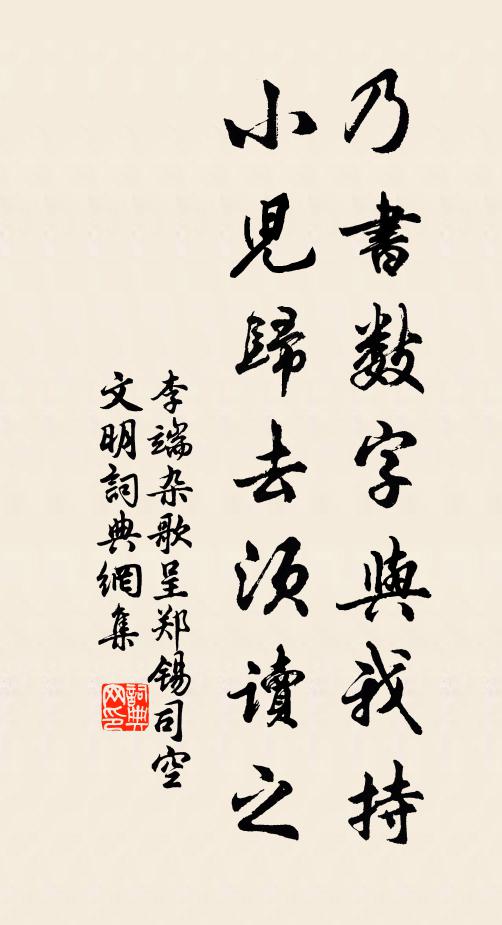 乃書数字與我持
小児歸去須讀之
李端杂歌呈郑锡司空
文明詞典網集
詞典网印